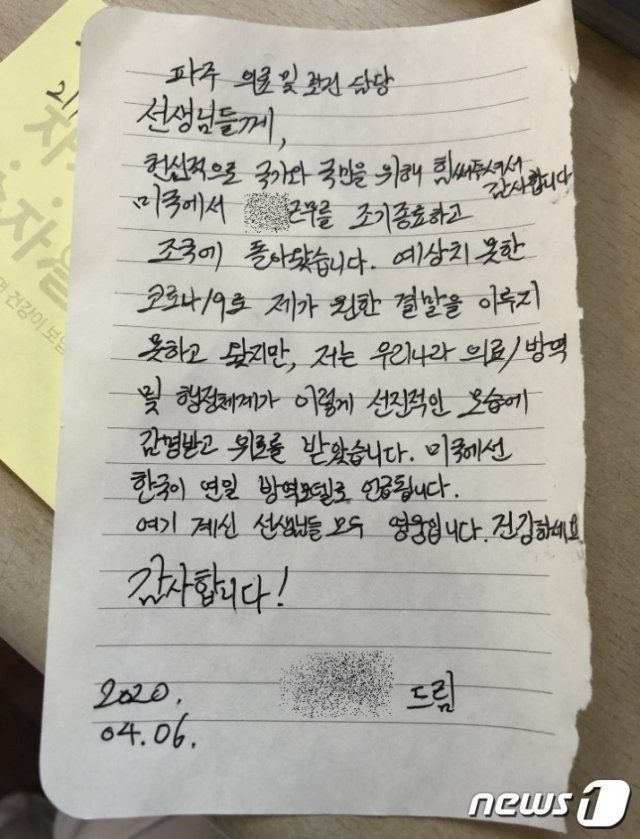 파주 의료 및 보건 담당
선생님들께,
헌신적으로 국가와 국민을 위해 힘써주셔서
감사합니다
미국에서 근무를 조기종료하고
조국에 돌아왔습니다. 예상치 못한
코로나19로 제가 원한 결말을 이루지
못하고 왔지만, 저는 우리나라 의료/방역
및 행정체계가 이렇게 선진적인 모습에
감명받고 위로를 받았습니다. 미국에선
한국이 연일 방역모델로 언급됩니다.
여기 계신 선생님들 모두 영웅입니다. 건강하세요
감사합니다!
2020. 드림
04.06.
news1